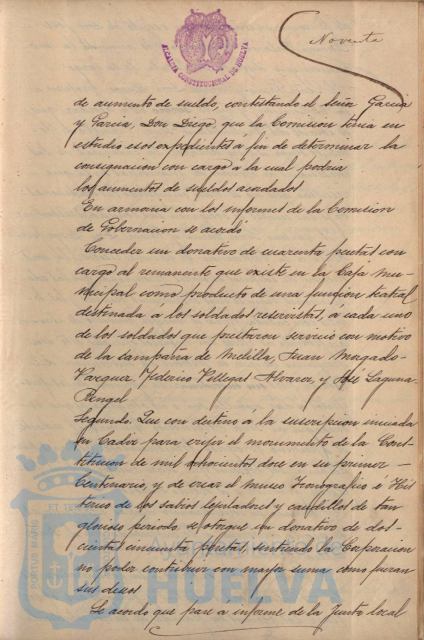 ALCALDIA CONSTITUCIONAL DE HUELVA
Noventa
de aumento de sueldo, contestando el Señor Garcia
y Garcia, Don Diego, que la Comision tenia en
estudio esos expedientes á fin de determinar la
consignacion con cargo á la cual podria
los aumentos de sueldos acordados
En armonia con los informes de la Comision
de Gobernacion se acordó
Conceder un donativo de cuarenta pesetas con
cargo al remanente que existe en la Caja Mu-
nicipal como producto de una funcion teatral
destinada á los soldados reservistas, á cada uno
de los soldados que prestaron servicio con motivo
de la campaña de Melilla, Juan Morgado
Vazquez, Federico Villegas Alvarez, y José Laguna
Rengel
Segundo. Que con destino á la suscripcion iniciada
en Cadiz para erijir el monumento de la Cons-
titucion de mil ochocientos doce en su primer
Centenario, y de crear el museo Iconografico é His-
torico de los sabios lejisladores y caudillos de tan
glorioso periodo se otorgue un donativo de dos-
cientas cincuenta pesetas, sintiendo la Corporacion
no poder contribuir con mayor suma como fueran
sus deseos
Se acordó que pase á informe de la Junta local
PORTUS MARIS
Ayuntamiento de
HUELVA